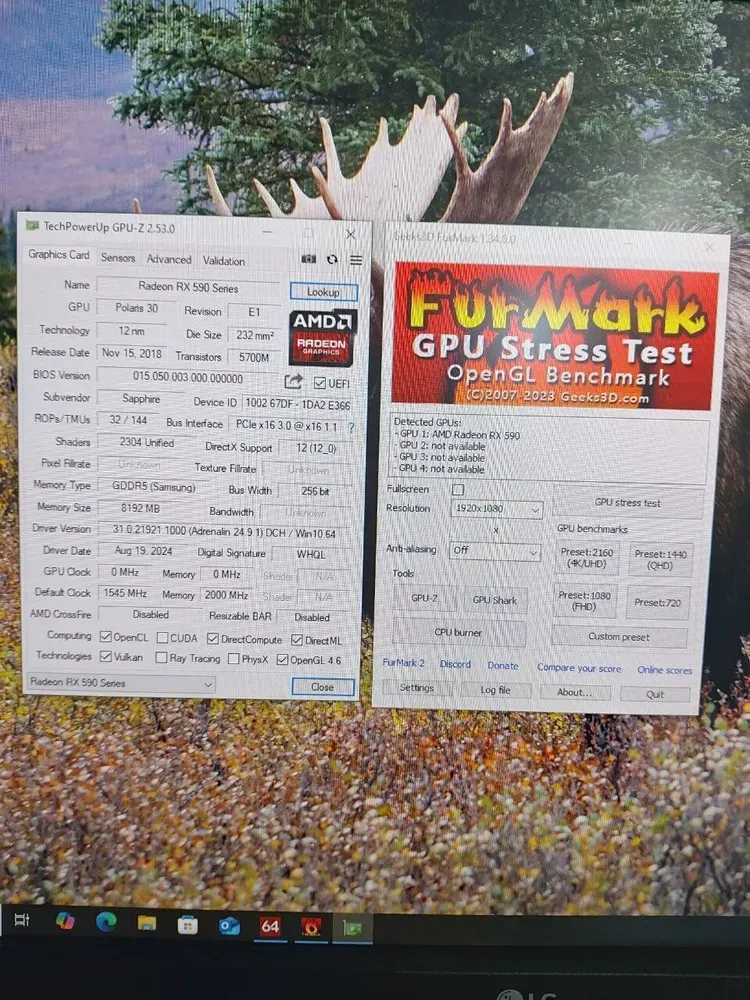 TechPowerUp GPU-Z 2.53.0
Graphics Card Sensors Advanced Validation
Name Radeon RX 590 Series Lookup
GPU Polaris 30 Revision E1
Technology 12 nm Die Size 232 mm²
Release Date Nov 15, 2018 Transistors 5700M
BIOS Version 015.050.003.000.000000 UEFI
Subvendor Sapphire Device ID 1002 67DF - 1DA2 E366
ROPs/TMUs 32 / 144 Bus Interface PCIe x16 3.0 @ x16 1.1 ?
Shaders 2304 Unified DirectX Support 12 (12_0)
Pixel Fillrate Unknown Texture Fillrate Unknown
Memory Type GDDR5 (Samsung) Bus Width 256 bit
Memory Size 8192 MB Bandwidth Unknown
Driver Version 31.0.21921.1000 (Adrenalin 24.9.1) DCH / Win10 64
Driver Date Aug 19, 2024 Digital Signature WHQL
GPU Clock 0 MHz Memory 0 MHz Shader N/A
Default Clock 1545 MHz Memory 2000 MHz Shader N/A
AMD CrossFire Disabled Resizable BAR Disabled
Computing OpenCL CUDA DirectCompute DirectML
Technologies Vulkan Ray Tracing PhysX OpenGL 4.6
Radeon RX 590 Series Close
AMD
RADEON
GRAPHICS
Geeks3D FurMark 1.34.0.0
FurMark
GPU Stress Test
OpenGL Benchmark
(C)2007-2023 Geeks3D.com
Detected GPUs:
- GPU 1: AMD Radeon RX 590
- GPU 2: not available
- GPU 3: not available
- GPU 4: not available
Fullscreen
Resolution 1920x1080
x
Anti-aliasing Off
Tools
GPU-Z GPU Shark
CPU burner
GPU stress test
GPU benchmarks
Preset:2160
(4K/UHD)
Preset:1440
(QHD)
Preset:1080
(FHD)
Preset:720
Custom preset
FurMark 2 Discord Donate Compare your score Online scores
Settings Log file About... Quit
64
LG